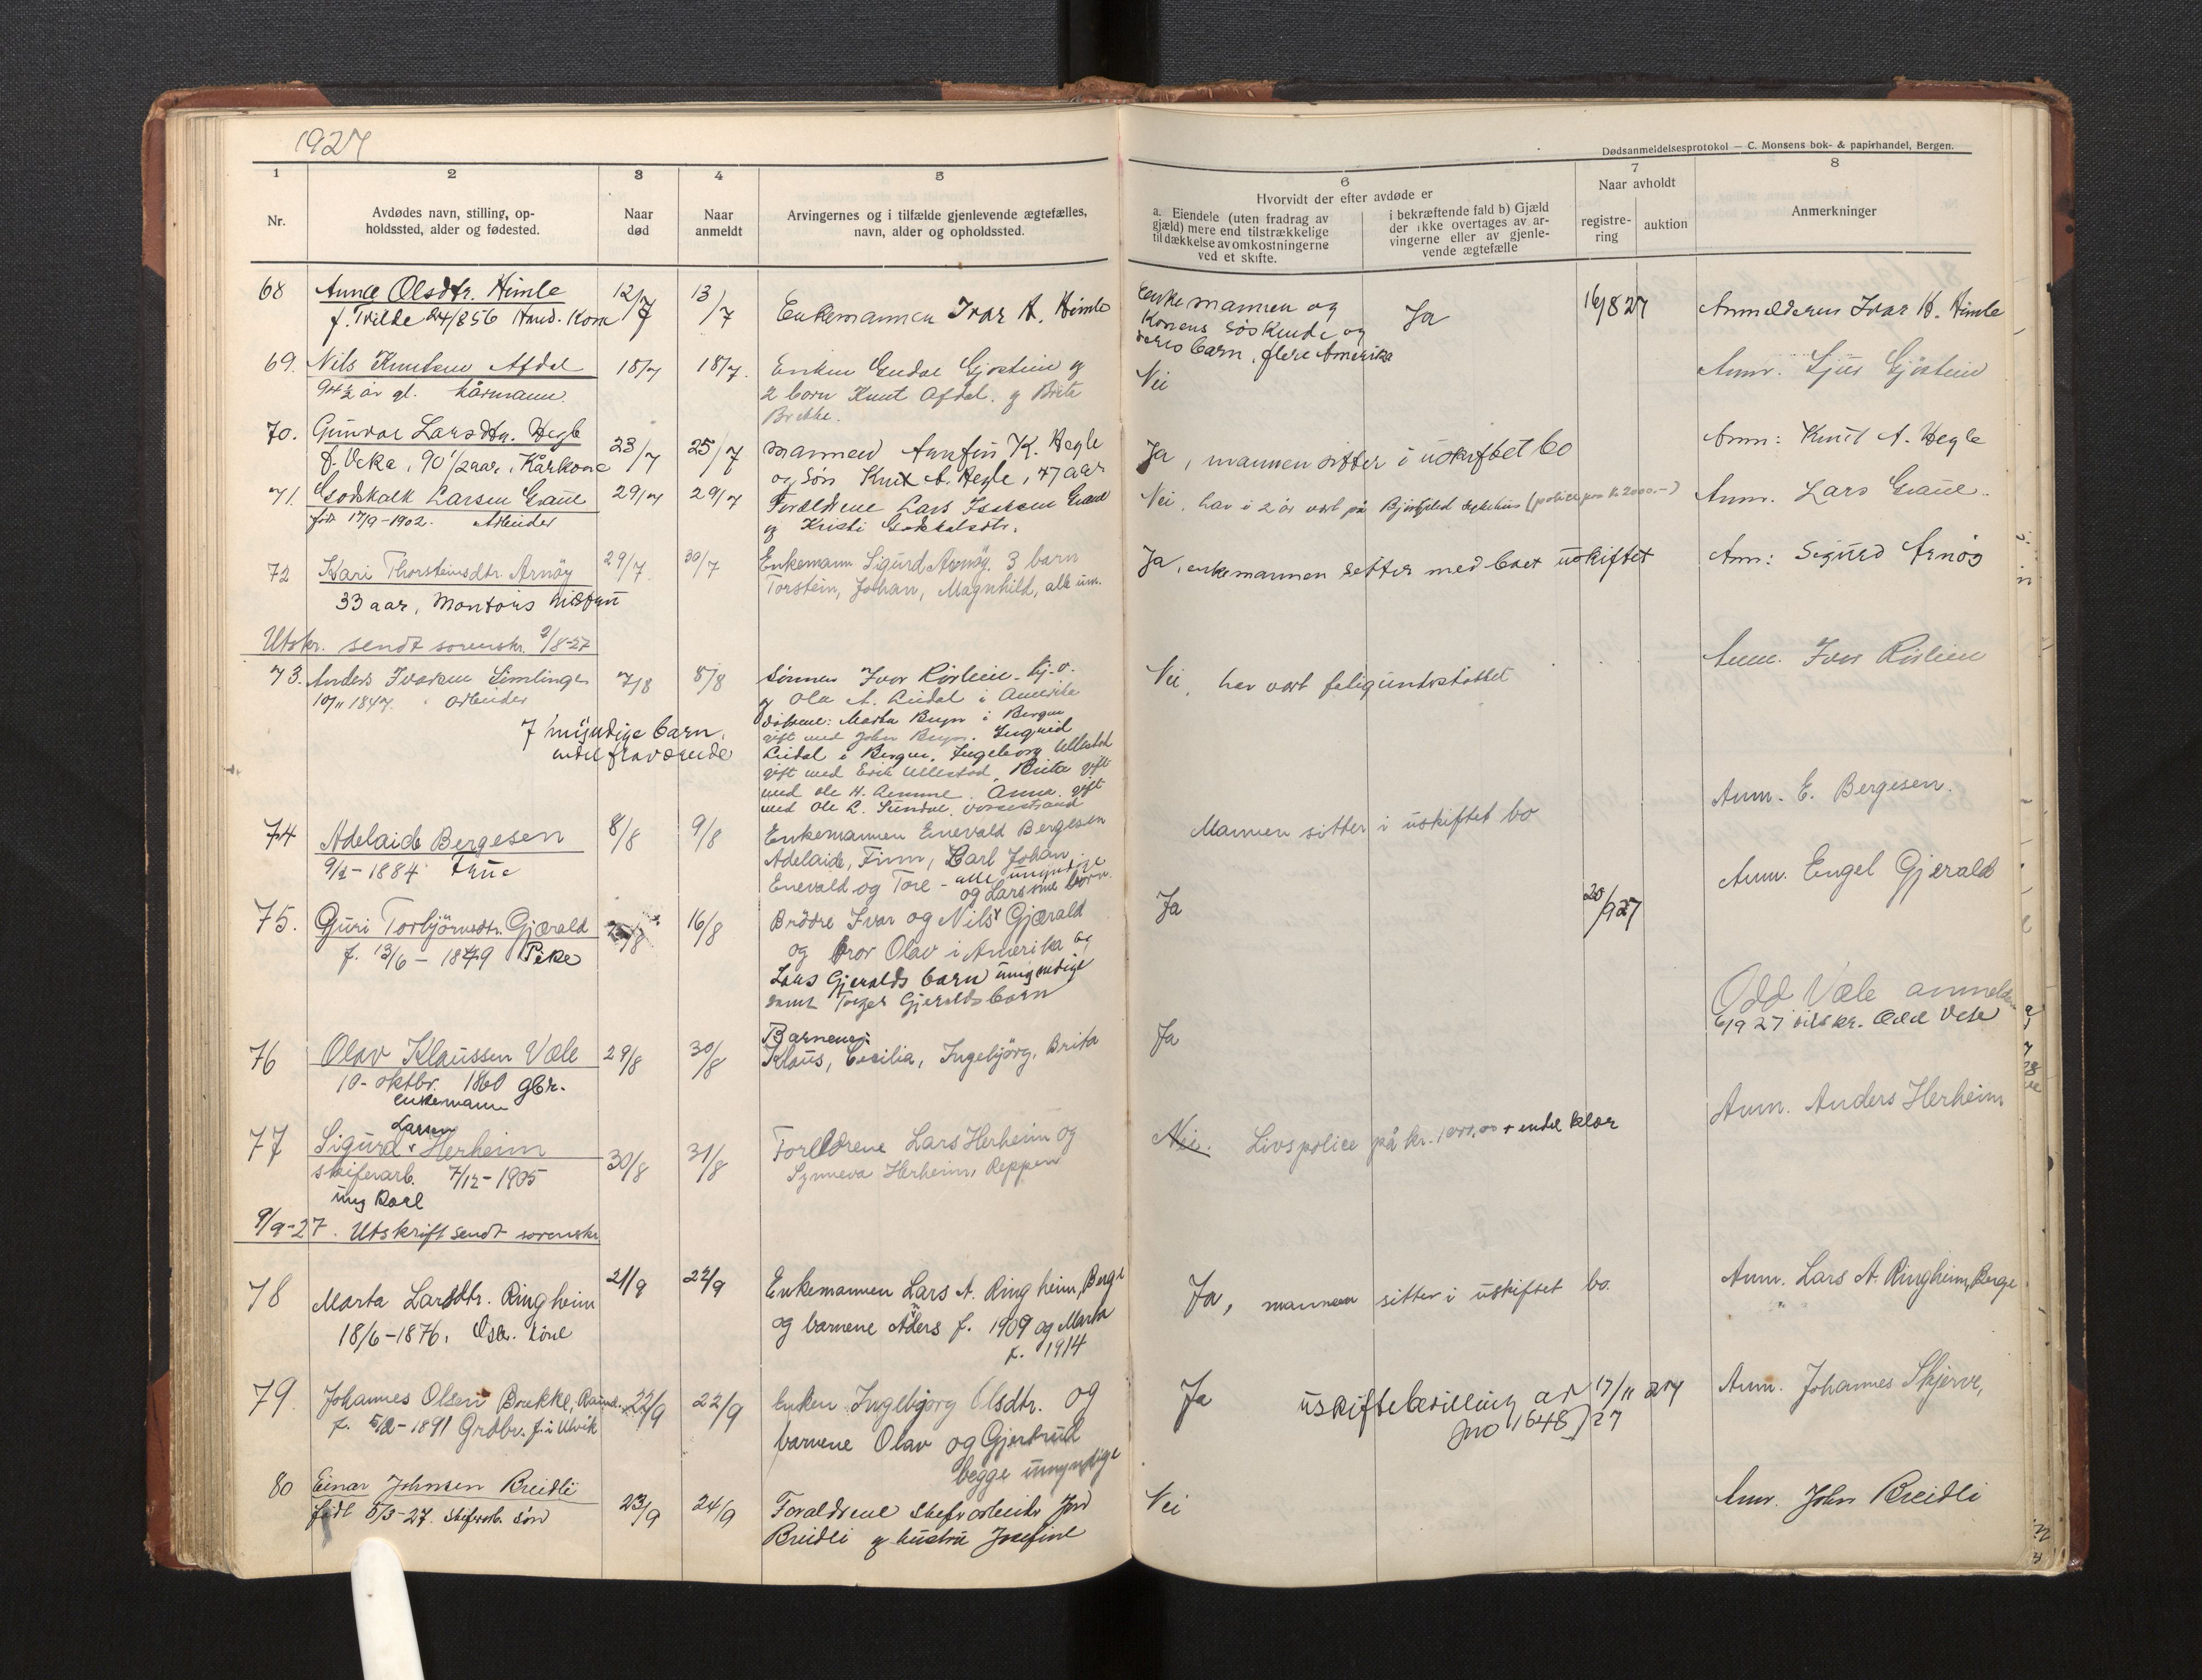 1927
Dødsanmeldelsesprotokol — C. Monsens bok- & papirhandel, Bergen.
1
Nr.
2
Avdødes navn, stilling, op-
holdssted, alder og fødested.
3
Naar
død
4
Naar
anmeldt
5
Arvingernes og i tilfælde gjenlevende ægtefælles,
navn, alder og opholdssted.
6
Hvorvidt der efter avdøde er
a. Eiendele (uten fradrag av
gjæld) mere end tilstrækkelige
til dækkelse av omkostningerne
ved et skifte.
i bekræftende fald b) Gjæld
der ikke overtages av ar-
vingerne eller av gjenle-
vende ægtefælle
7
Naar avholdt
registre-
ring
auktion
8
Anmerkninger
68
Anna Olsdtr. Himle
f. Tvilde 24/8 56 Kone
12/7
13/7
Enkemannen Ivar A. Himle
Enkemannen og
Konens Søskende og
deres barn, flere Amerika
Ja
16/8 27
Anmelderen Ivar A. Himle
69.
Nils Knutsen Afdal
94½ år gl. kårmann.
18/7
18/7.
Enken Gjøstein og
2 born Knut Afdal. og Brita
Brekke.
Nei
Anm. Gjøstein
70.
Gunvor Larsdtr. Hegle
f. Veka, 90 1/2 aar, Kårkone
23/7
25/7
Mannen Arnfin K. Hegle
og søn Knut A. Hegle, 47 aar
Ja, mannen sitter i uskiftet bo
Anm: Knut A. Hegle
71.
Godskalk Larsen Graue
født 17/9-1902. Arbeider
29/7
29/7
Foreldrene Lars Graue
og Kristi
Nei, har i 2 år vært på sykehus (police paa kr. 2000.-)
Anm. Lars Graue.
72
Kari Thorsteinsdtr. Arnøy
33 aar, Montørs hustru
29/7
30/7
Enkemann Sigurd Arnøy. 3 barn
Torstein, Johan, Magnhild, alle um.
Ja, enkemannen sitter med boet uskiftet
Anm: Sigurd Arnøy
Utskr. sendt sorenskr. 2/8-27
73.
Anders Ivarsen
10/11 1847. Arbeider
7 myndige barn,
endel fraværende
7/8
8/8
Sønnen Ivar
og Ola A. Lidal i Amerika
døtrene: Marta i Bergen
gift med John Ingrid
Lidal i Bergen, Ingeborg Ullestad
gift med Erik Ullestad, Brita gift
med Ole H. Anna gift
med Ole L. Sundve, Vossestrand
Nei, har vært fatigunderstøttet
Anm. Ivar
74
Adelaide Bergesen
1884 Frue
8/8
9/8
Enkemannen Enevald Bergesen
Adelaide, Finn, Carl Johan
Enevald og Tore - alle umyndige
og Lars sine born.
Mannen sitter i uskiftet bo
Anm. E. Bergesen.
75.
Guri Torbjørnsdtr. Gjærald
f. 13/6 - 1849 Pike
16/8
Brødre Ivar og Nils Gjærald
og bror Olav i Amerika og
Lars Gjeralds barn umyndige
samt Torger Gjeralds barn
Ja
20/9 27
Anm. Engel Gjerald
76
Olav Klaussen Væle
10- oktbr. 1860 gbr.
enkemann
29/8
30/8
Barnene:
Klaus, Cecilia, Ingebjørg, Brita
Ja
Odd Væle anmelder
6/9 27 utskr. Odd Vele
77
Larsen
Sigurd Herheim
skiferarb. 7/12-1905
ung Karl
30/8
31/8
Foreldrene Lars Herheim og
Synneva Herheim, Reppen
Nei. Livspolice på kr. 1000,00 + endel klær
Anm. Anders Herheim
9/9-27. Utskrift sendt sorenskr.
78
Marta Larsdtr. Ringheim
18/6-1876,
21/9
22/9
Enkemannen Lars A. Ringheim, Berge
og barnene Anders f. 1909 og Marta
f. 1914
Ja, mannen sitter i uskiftet bo.
Anm. Lars A. Ringheim, Berge
79.
Johannes Olsen Brekke,
1891 Grdbr. f. i Ulvik
22/9
22/9
Enken Ingebjørg Olsdtr. og
barnene Olav og Gjertrud
begge umyndige
Ja
uskiftebevilling av 17/11 27
Jno 1648/27
Anm. Johannes Skjerve,
80
Einar Johnsen Breidli
født 5/3-27. skiferarb. søn
23/9
24/9
Foreldrene skiferarbeider John
Breidli og hustru Josefine
Nei
Anm. John Breidli